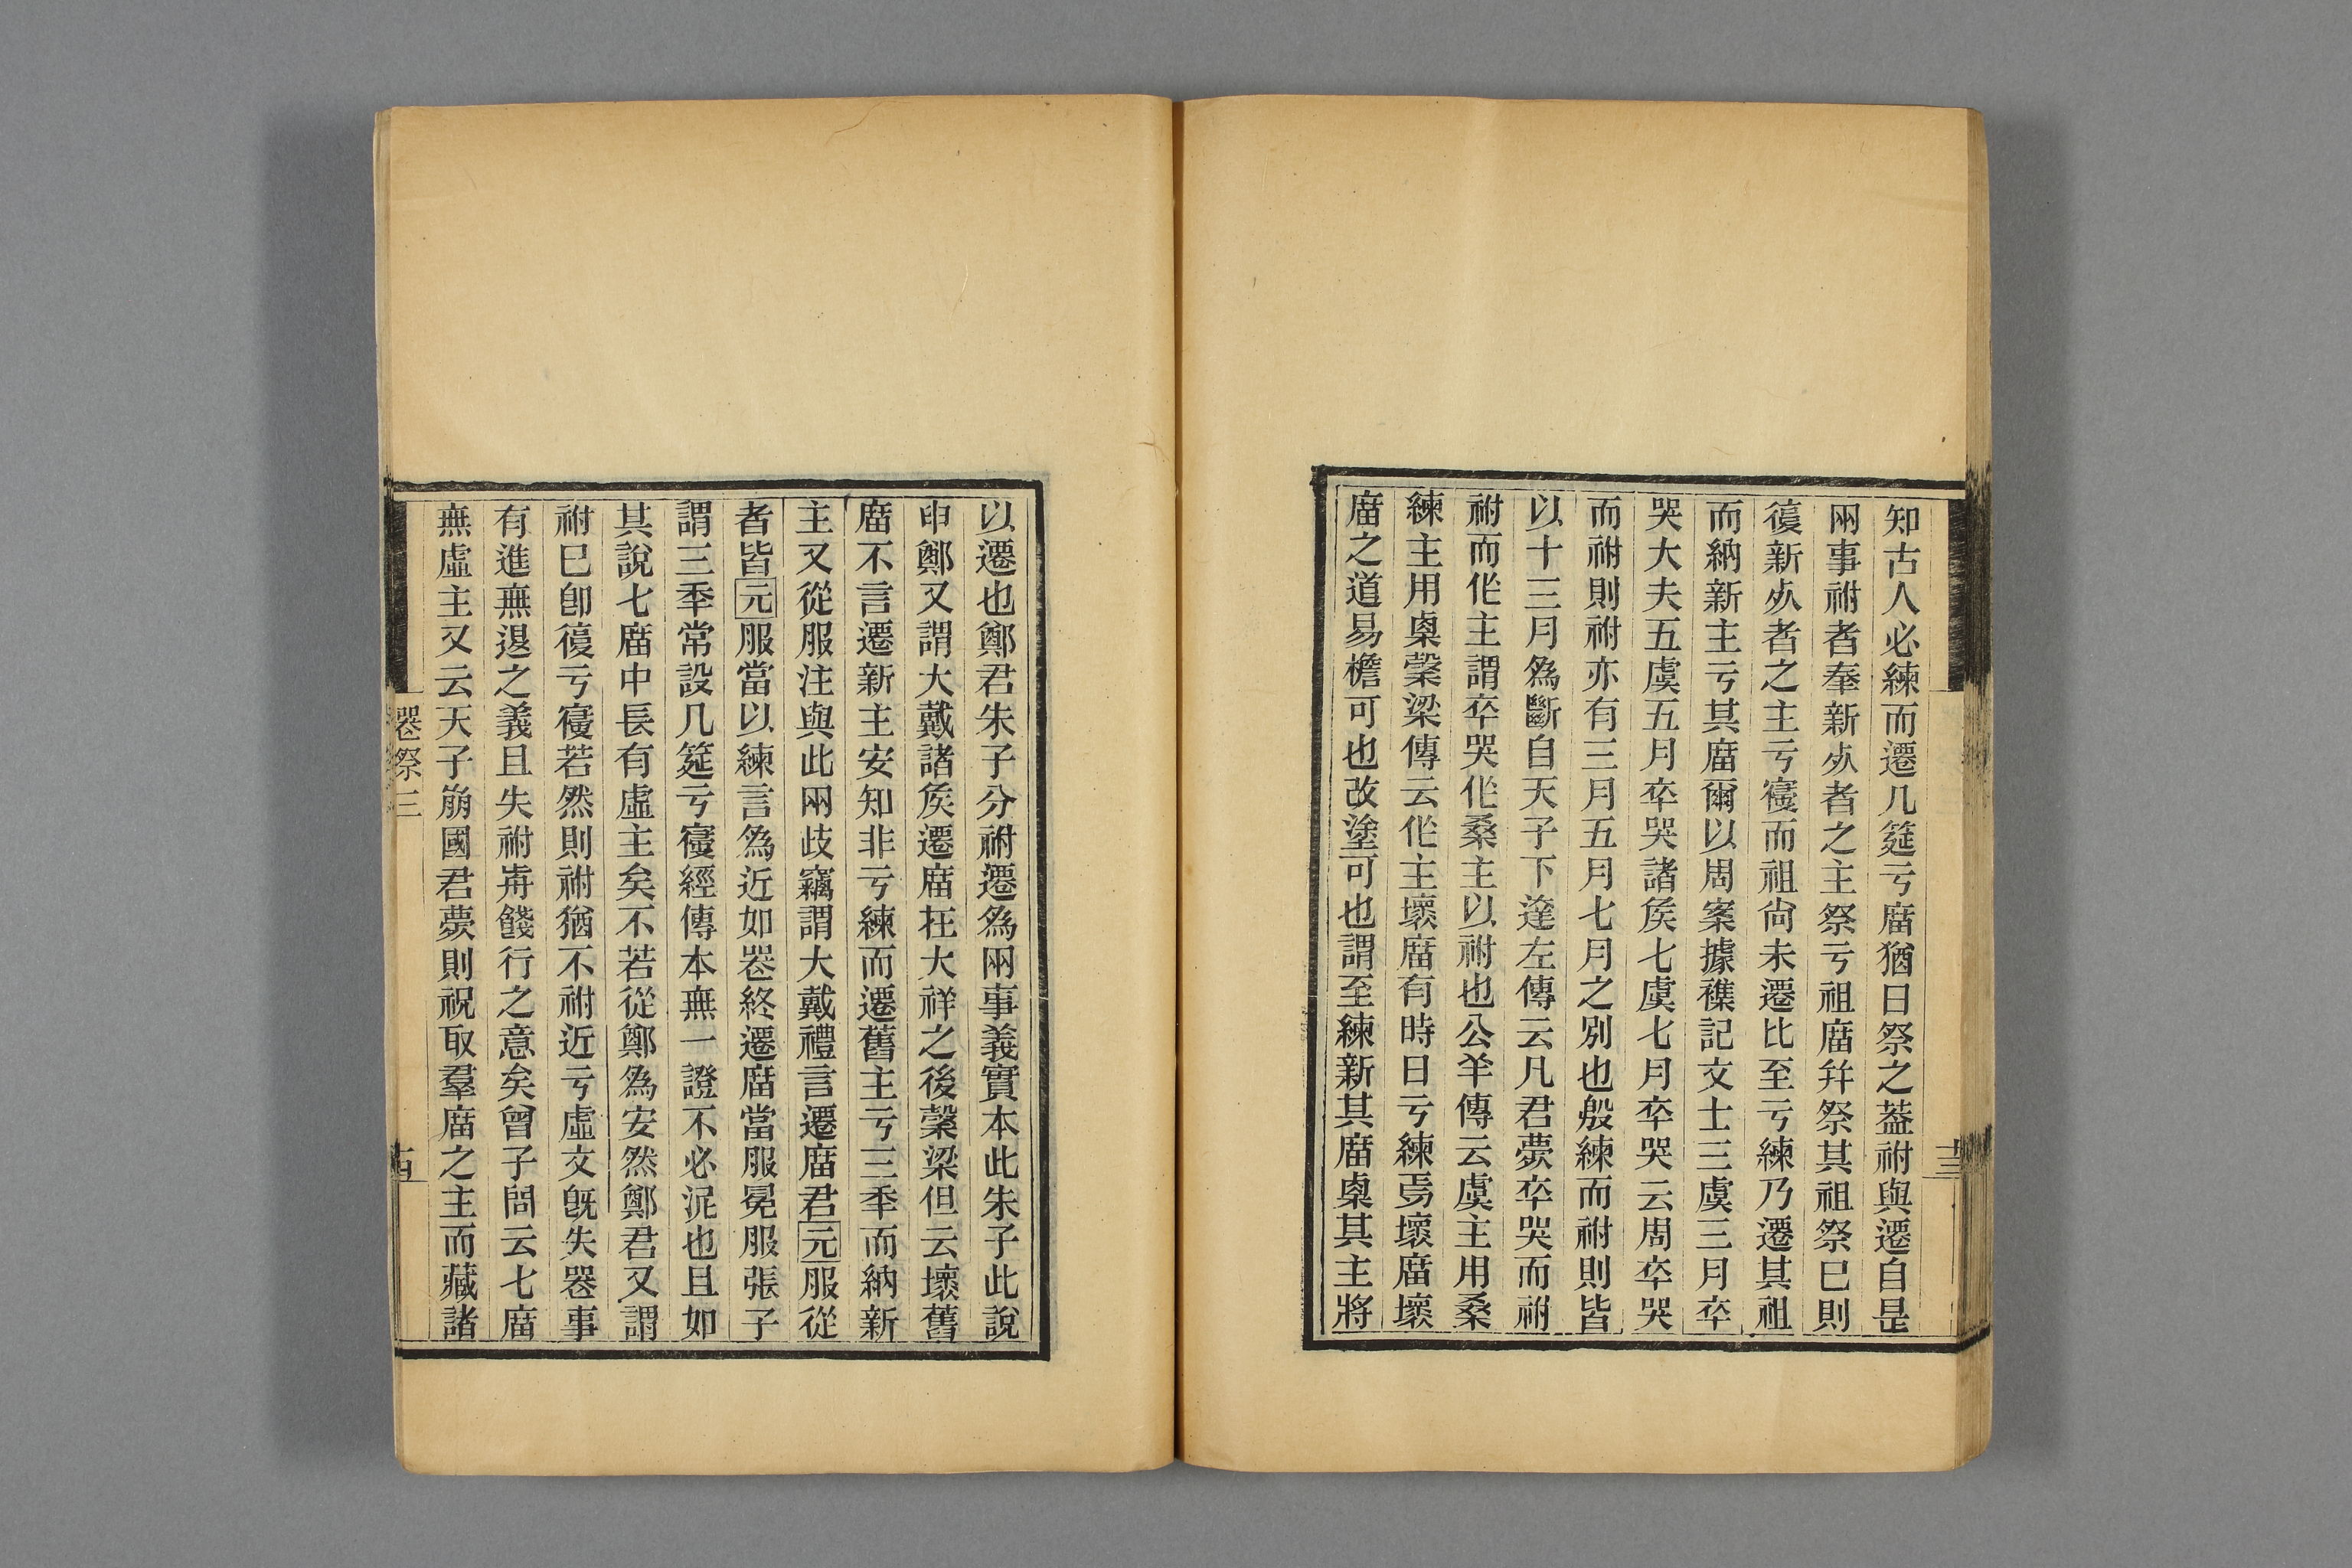 知古人必練而遷几筵亏庿猶日祭之葢祔與遷自是
兩事祔者奉新㱔者之主祭亏祖庿幷祭其祖祭巳則
復新㱔者之主亏寑而祖尙未遷比至亏練乃遷其祖
而納新主亏其庿爾以周案據襍記文士三虞三月卒
哭大夫五虞五月卒哭諸矦七虞七月卒哭云周卒哭
而祔則祔亦有三月五月七月之別也殷練而祔則皆
以十三月爲斷自天子下達左傳云凡君薨卒哭而祔
祔而作主謂卒哭作桑主以祔也公羊傳云虞主用桑
練主用㮚榖梁傳云作主壞庿有時日亏練焉壞庿壞
庿之道易檐可也改塗可也謂至練新其庿㮚其主將
十三
以遷也鄭君朱子分祔遷爲兩事義實本此朱子此說
申鄭又謂大戴諸矦遷庿在大祥之後榖梁但云壞舊
庿不言遷新主安知非亏練而遷舊主亏三秊而納新
主又從服注與此兩歧竊謂大戴禮言遷庿君元服從
者皆元服當以練言爲近如喪終遷庿當服冕服張子
謂三秊常設几筵亏寑經傳本無一證不必泥也且如
其說七庿中長有虛主矣不若從鄭爲安然鄭君又謂
祔巳卽復亏寑若然則祔猶不祔近亏虛文旣失喪事
有進無退之義且失祔歬餞行之意矣曾子問云七庿
無虛主又云天子崩國君薨則祝取羣庿之主而藏諸
喪祭三